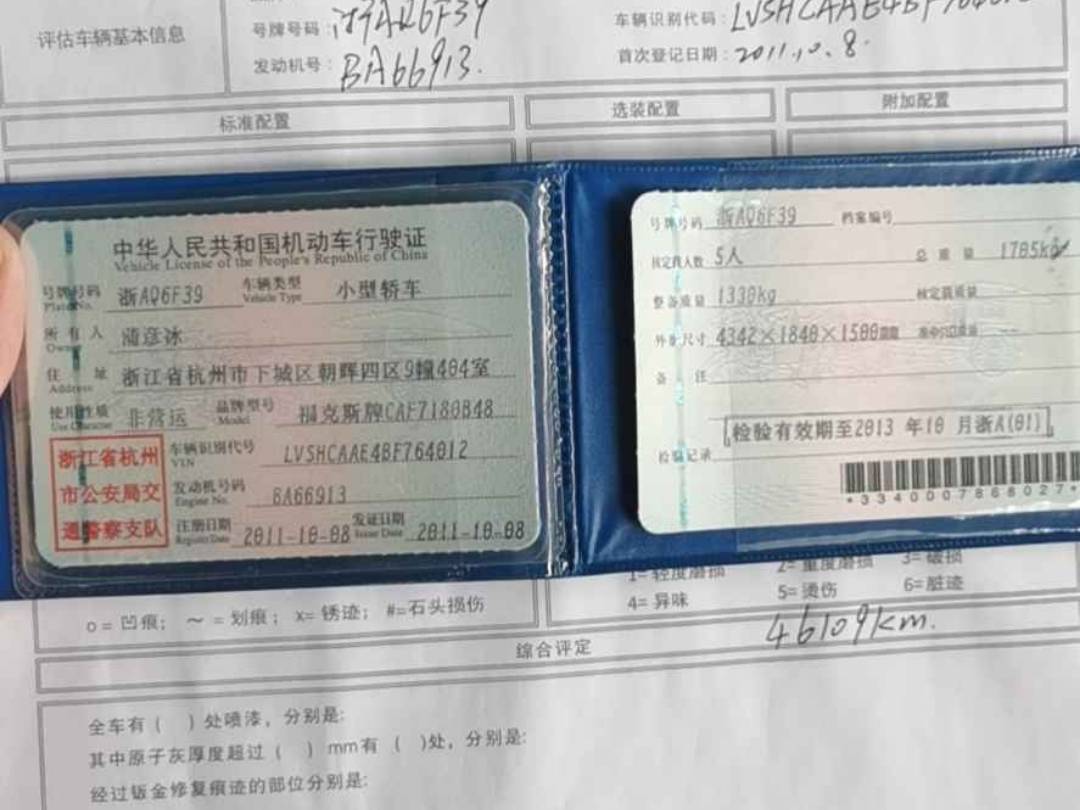 评估车辆基本信息
号牌号码：浙AQ6F39
车辆识别代码：
发动机号：BA66913.
首次登记日期：2011.10.8.
标准配置
选装配置
附加配置
中华人民共和国机动车行驶证
Vehicle License of the People's Republic of China
号牌号码 浙AQ6F39 车辆类型 小型轿车
Plate No. Vehicle Type
所有人 蒲彦冰
Owner
住址 浙江省杭州市下城区朝晖四区9幢404室
Address
使用性质 非营运 品牌型号 福克斯牌CAF7180B48
Use Character Model
车辆识别代号 LVSHCAAE4BF764012
VIN
发动机号码 BA66913
Engine No.
注册日期 2011-10-08 发证日期 2011-10-08
Register Date Issue Date
浙江省杭州
市公安局交
通警察支队
号牌号码 浙AQ6F39 档案编号
核定载人数 5人 总质量 1705kg
整备质量 1330kg 核定载质量
外廓尺寸 4342×1840×1500mm 准牵引总质量 --
备注
检验有效期至2013 年10 月浙A(01)
检验记录
*3340007868027*
1=轻度磨损 2=重度磨损 3=破损
4=异味 5=烫伤 6=脏迹
o=凹痕；～=划痕；x=锈迹；#=石头损伤
46109km.
综合评定
全车有（ ）处喷漆，分别是：
其中原子灰厚度超过（ ）mm有（ ）处，分别是：
经过钣金修复痕迹的部位分别是：